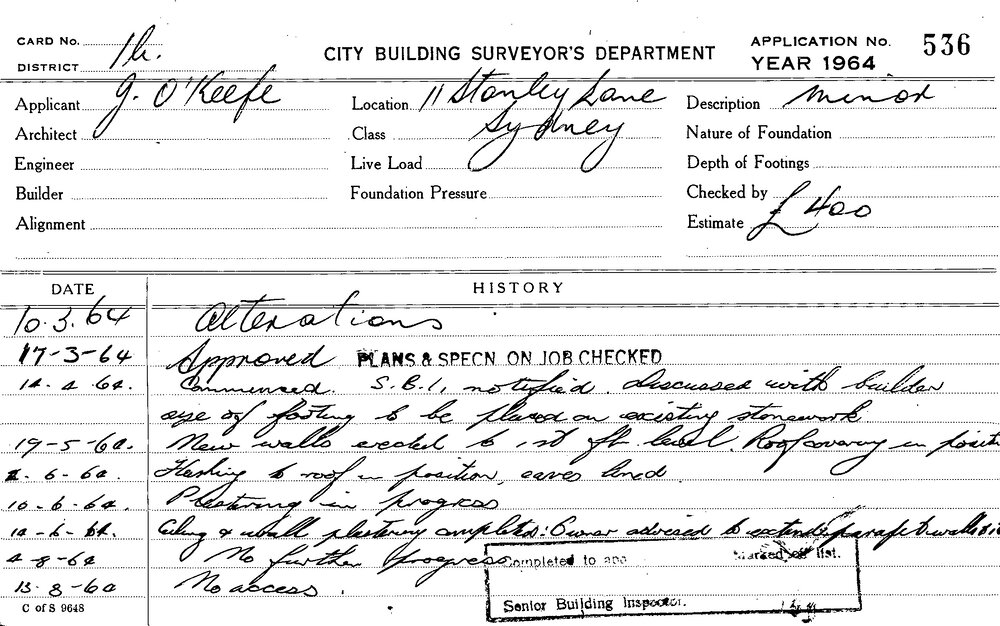 CARD No.
DISTRICT
CITY BUILDING SURVEYOR'S DEPARTMENT
APPLICATION No. 536
YEAR 1964
Applicant J. O'Keefe
Location 11 Stanley Lane
Sydney
Description Minor
Architect
Class
Nature of Foundation
Engineer
Live Load
Depth of Footings
Builder
Foundation Pressure
Checked by
Alignment
Estimate £ 400
DATE HISTORY
10.3.64 Alterations
17-3-64 Approved PLANS & SPECN. ON JOB CHECKED
14.4.64. Commenced. S.B.I. notified. Discussed with builder
size of footing to be placed on existing stonework
19-5-64. New walls erected to 1st flr level. Roofcovering in positi
2-6-64. Flashing to roof in position, eaves lined
10-6-64. Plastering in progress
Ceiling & wall plastering completed. Owner advised to extend parapet walls
4-8-64 No further progress
13-8-64 No access.
Completed to and Marked off list.
Senior Building Inspector.
C of S 9648